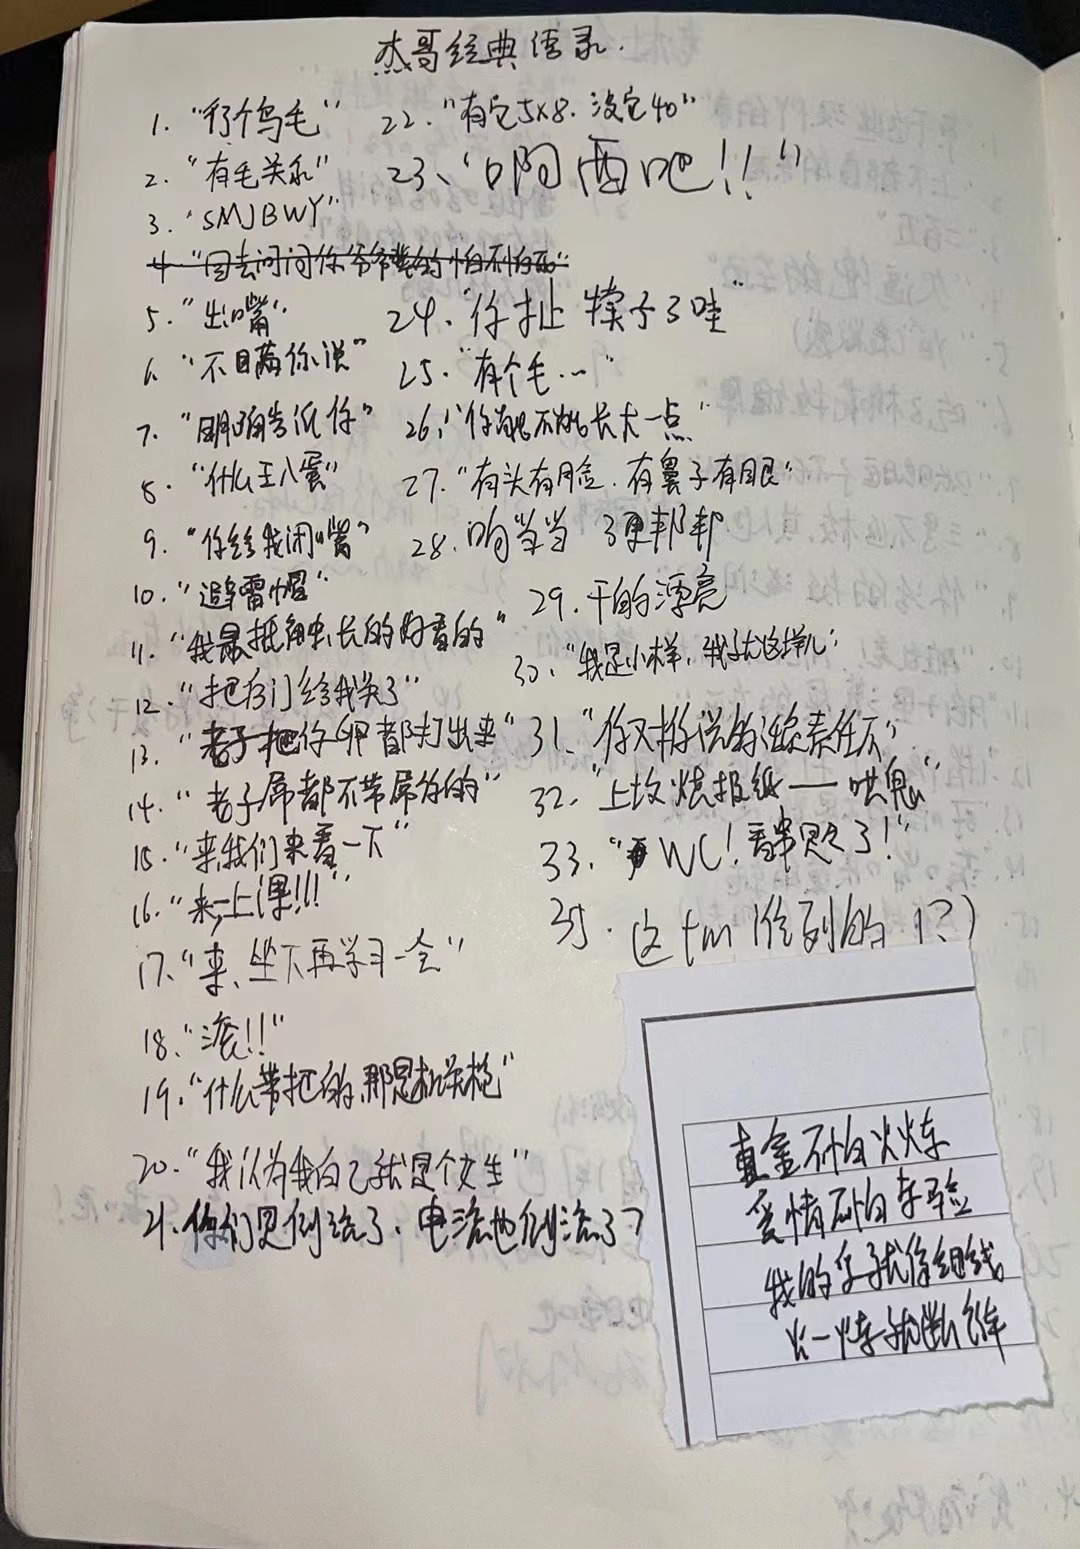 杰哥经典语录.
1. "行个鸟毛"
2. "有毛关系"
3. "SMJBWY"
4. "回去问问你爷爷 的怕不怕
5. "出嘴"
6. "不目 你说"
7. "明确告诉你"
8. "什么王八蛋"
9. "你给我闭嘴"
10. "避雷帽"
11. "我最抵触长的好看的"
12. "把后门给我关了"
13. "老子把你卵都打出来"
14. "老子屌都不带屌你的"
15. "来,我们来看一下"
16. "来,上课!!!"
17. "来、坐下再学习一会"
18. "滚!!"
19. "什么带把的,那是机关枪"
20. "我认为我自己就是个女生"
21. 你们思 了、电 也 了
22. "有它5X8.没它40"
23、"啊 吧!!"
24."你扯犊子了哇"
25."有个毛…"
26."你能不能长大一点"
27."有头有脸.有鼻子有眼"
28. 响当当 了 邦邦
29. 干的漂亮
30."我是小样,我就这样儿"
31. "你对你说的话负责任不"
32."上坟烧报纸——哄鬼"
33."WC!看串 了!"
35. 这tm 列的(?)
真金不怕火炼
爱情不怕考验
我的 就像细线
火一炼就断